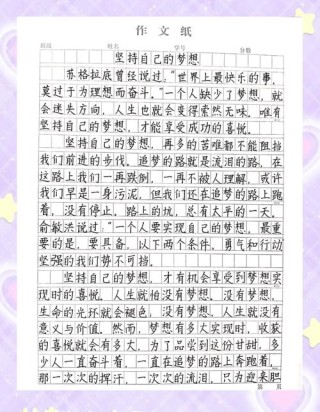 作文纸
班级 姓名 学号 分数
坚持自己的梦想
苏格拉底曾经说过，“世界上最快乐的事，
莫过于为理想而奋斗。”一个人缺少了梦想，就
会迷失方向，人生也就会变得索然无味。唯有
坚持自己的梦想，才能享受成功的喜悦。
坚持自己的梦想，再多的苦难都不能阻挡
我们前进的步伐，追梦的路就是流泪的路。在
这路上我们一再跌倒，一再不被人理解，或许
我们早是一身污泥，但我们还在追梦的路上跑
着，没有停止，路上的忧，总有太平的一天。
俞敏洪说过“一个人要实现自己的梦想，最重
要的是，要具备，以下两个条件，勇气和行动
坚强的我们势不可挡。
坚持自己的梦想，才有机会享受到梦想实
现时的喜悦。人生就怕没有梦想，没有梦想，
生命的光环就会褪色，没有梦想，人生就没有
意义与价值，然而，梦想有多大实现时，收获
的喜悦就会有多大，为了品尝到这份甘甜，多
少人一直奋斗着，一直在追梦的路上奔跑着，
那一次次的挥汗，一次次的流泪，只为迎来胜
第 页